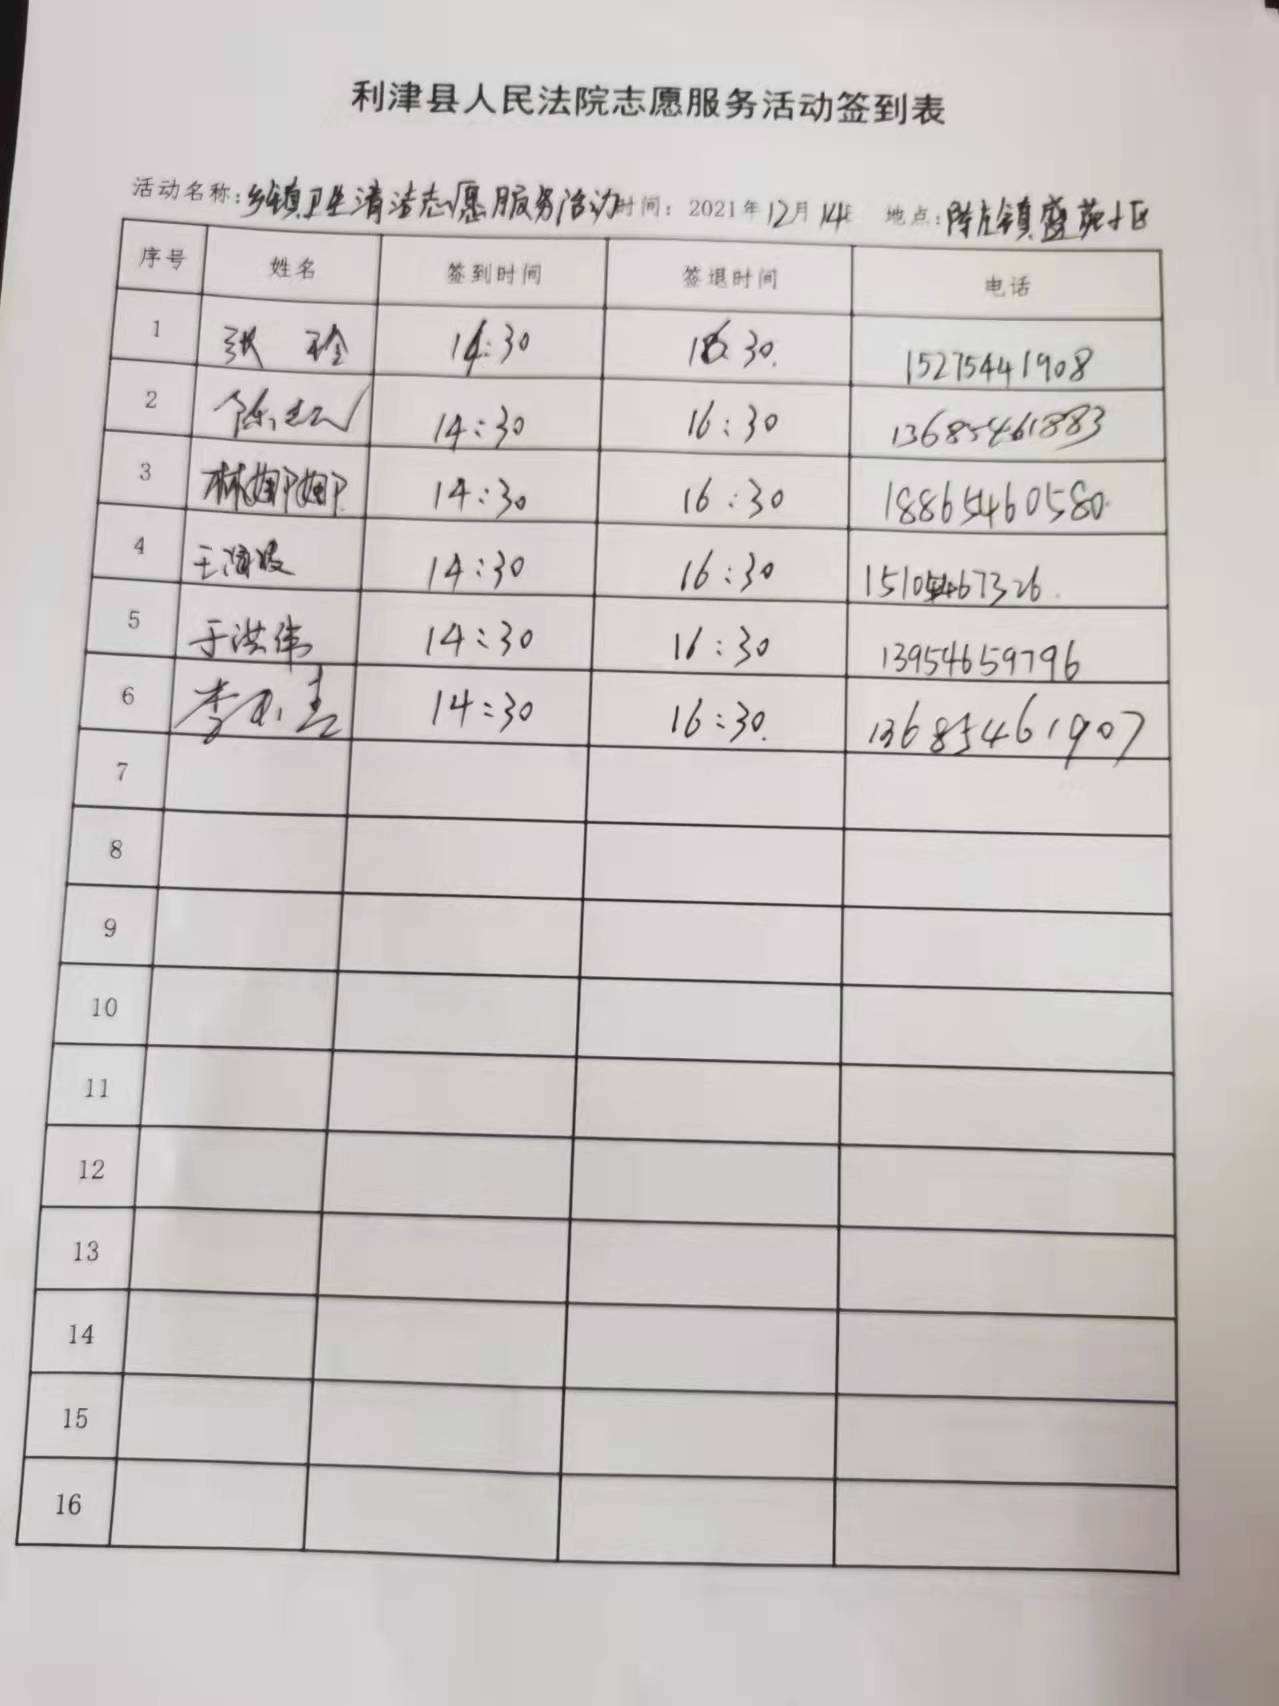 利津县人民法院志愿服务活动签到表
活动名称:乡镇卫生清洁志愿服务活动 时间:2021年12月14日 地点:陈庄镇盛苑小区
序号 姓名 签到时间 签退时间 电话
1 张玲 14:30 16:30. 15275441908
2 14:30 16:30 13685461883
3 林娜娜 14:30 16:30 18865460580.
4 王海波 14:30 16:30 15105467326.
5 于洪伟 14:30 16:30 13954659796
6 李 14:30 16:30. 13685461907
7
8
9
10
11
12
13
14
15
16